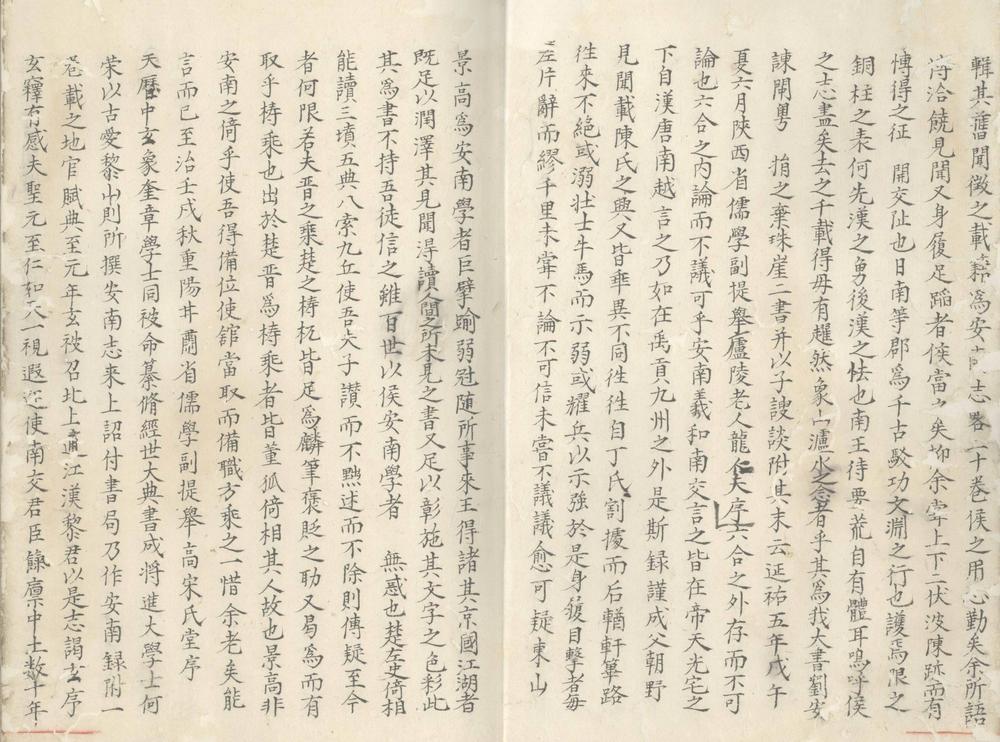 輯其舊聞徵之載籍爲安南志畧二十卷侯之用心勤矣余所語
淹洽饒見聞又身履足蹈者侯當之矣抑余雩上上下二伏波陳跡而有
愽得之征　開交阯也日南等郡爲千古駁功文淵之行也謢焉限之
銅柱之表何先漢之勇後漢之怯也南王待要荒自有體耳嗚呼侯
之志盡矣去之千載得毋有趯然象山瀘水之念者乎其爲我大書劉安
諫閩粤　捐之棄珠崖二書并以子謏談附其末云延祐五年戊午
夏六月陝西省儒學副提舉廬陵老人龍仁夫序六合之外存而不可
論也六合之内論而不議可乎安南羲和南交言之皆在帝天光宅之
下自漢唐南越言之乃如在禹貢九州之外是斯録謹成父朝野
見聞載陳氏之興又皆乖異不同徃徃自丁氏割㩀而后輶軒篳路
徃來不絶或溺壮士牛馬而示弱或耀兵以示強於是身㣪目擊者每
左片辭而繆千里未甞不論不可信未嘗不議議愈可疑東山
景高爲安南學者巨擘踰弱冠随所事來王得諸其京國江湖者
既足以潤澤其見聞淂讀人間之所未見之書又足以彰施其文字之色彩此
其爲書不持吾徒信之雖百世以俟安南學者　無惑也楚左史倚相
能讀三墳五典八索九丘使吾夫子讃而不黜述而不除則傳疑至今
者何限若夫晋之乘楚之梼杌皆足爲麟筆褒貶之助又曷爲而有
取乎梼乘也出於楚晋爲梼乘者皆董狐倚相其人故也景高非
安南之倚乎使吾得備位使舘當取而備職方乘之一惜余老矣能
言而已至治壬戌秋重陽井爵省儒學副提舉高宋氏堂序
天曆中玄象奎章學士同被命纂脩經世大典書成將進大學士何
荣以古爱黎山則所撰安南志来上詔付書局乃作安南録附一
卷載之地官賦典至元年玄被召北上道江漢黎君以是志謁玄序
玄釋有感夫聖元至仁如天一視遐迩使南交君臣餘廪中土数十年